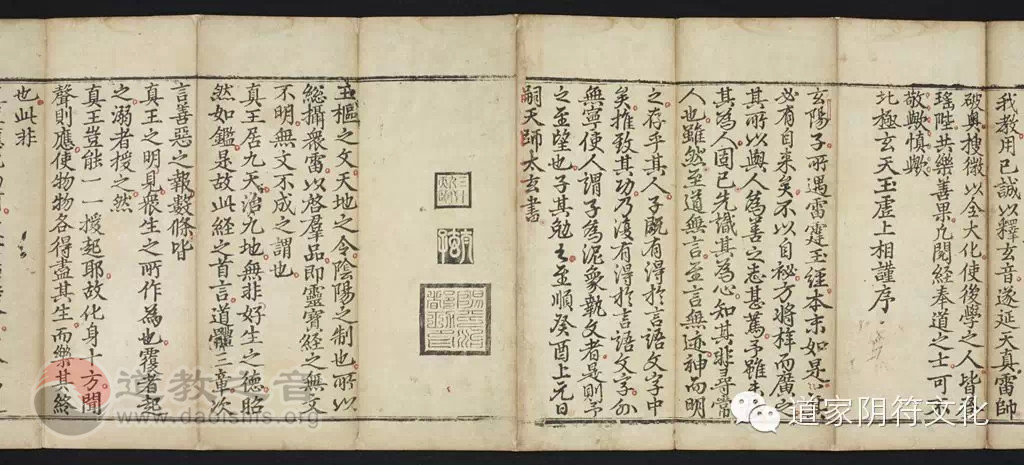 我教用已誠以釋玄音遂延天真雷師
破奧搜微以全大化使後學之人皆
瑤陛共樂善果凡聞經奉道之士可不
敬歟慎歟
北極玄天玉虛上相謹序
玄陽子所遇雷霆玉經本末如是
必有自来矣不以自秘方將梓而廣之
其所以與人為善之志甚篤予雖未
其為人固已先識其為心知其非尋常
人也雖然至道無言至言無迹神而明
之存乎其人子既有得於言語文字中
矣推致其功乃須有得於言語文字外
無寧使人謂子為泥象執文者是則予
之至望也子其勉之至順癸酉上元日
嗣天師太玄書
玉樞之文天地之令陰陽之制也所以
總攝衆雷以啓羣品即靈寶經之無文
不明無文不成之謂也
真王居九天治九地無非好生之德昭
然如鑑是故此經之首言道體三章次
言善惡之報數條皆
真王之明見衆生之所作為也覆者起
之溺者援之然
真王豈能一一援起耶故化身十方聞
聲則應使物物各得盡其生而樂其終
也此非
道教之音
www.daoisms.org
道家阴符文化